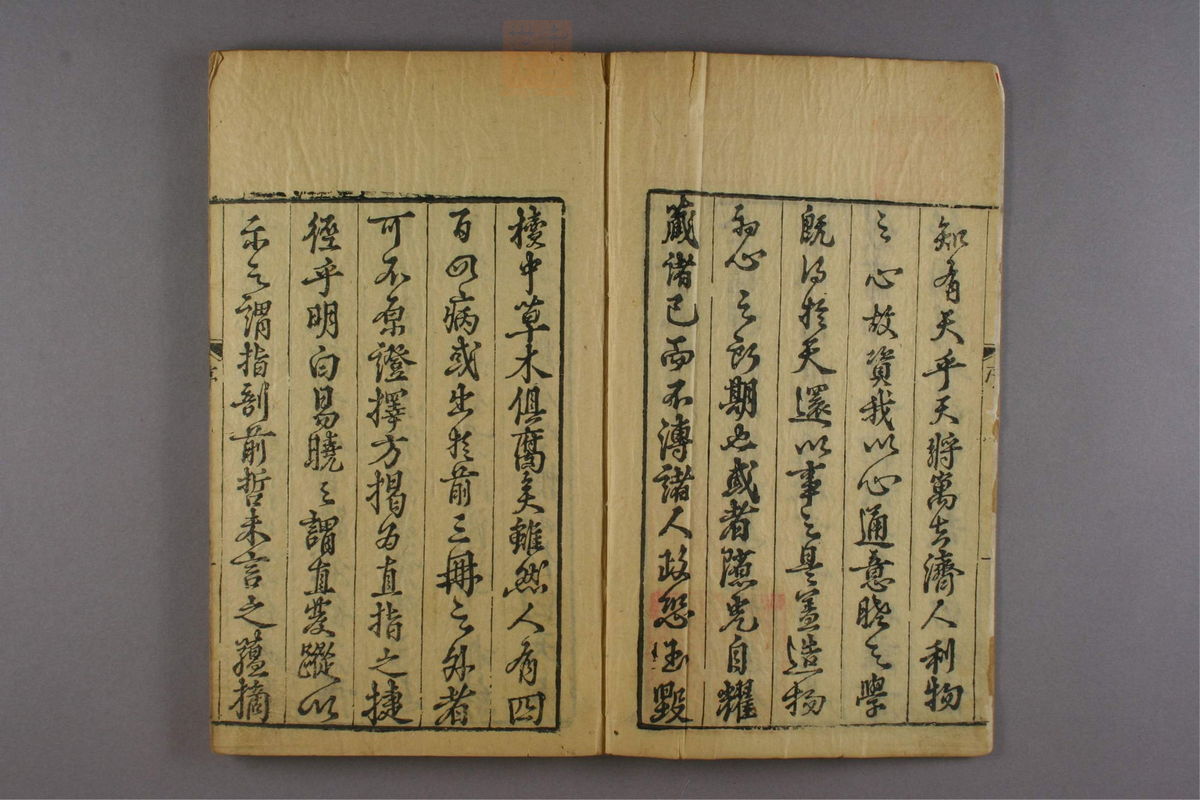 知有天乎天將寓吾濟人利物
之心故資我以心通意曉之學
既得於天還以事之是蓋造物
初心之所期也或者隱光自耀
藏諸已而不溥諸人政恐玉毀
櫝中草木俱腐矣雖然人有四
百以病或出於前三冊之外者
可不原證擇方揭為直指之捷
徑乎明白易曉之謂直發蹤以
示之謂指剖前哲未言之蘊摘